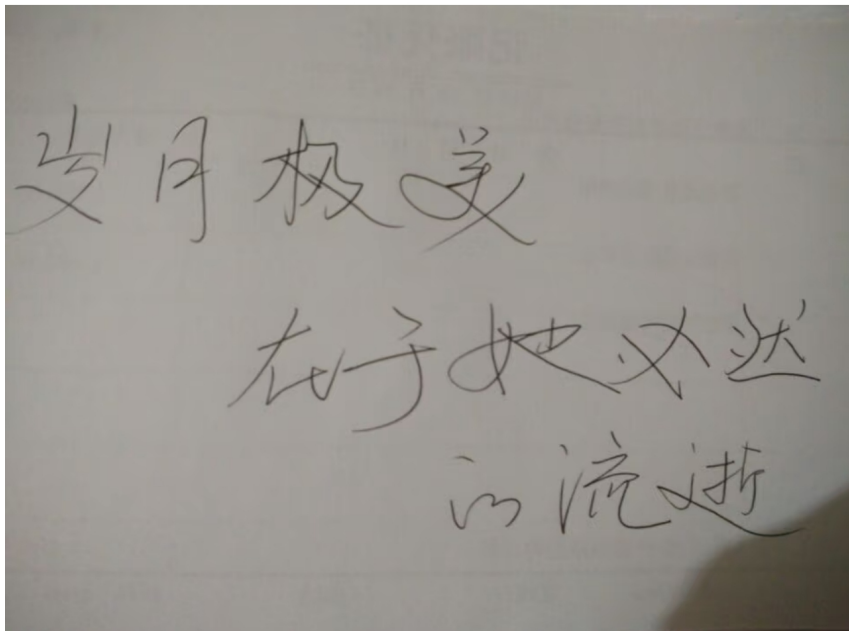 岁月极美
在于她必然
的流逝